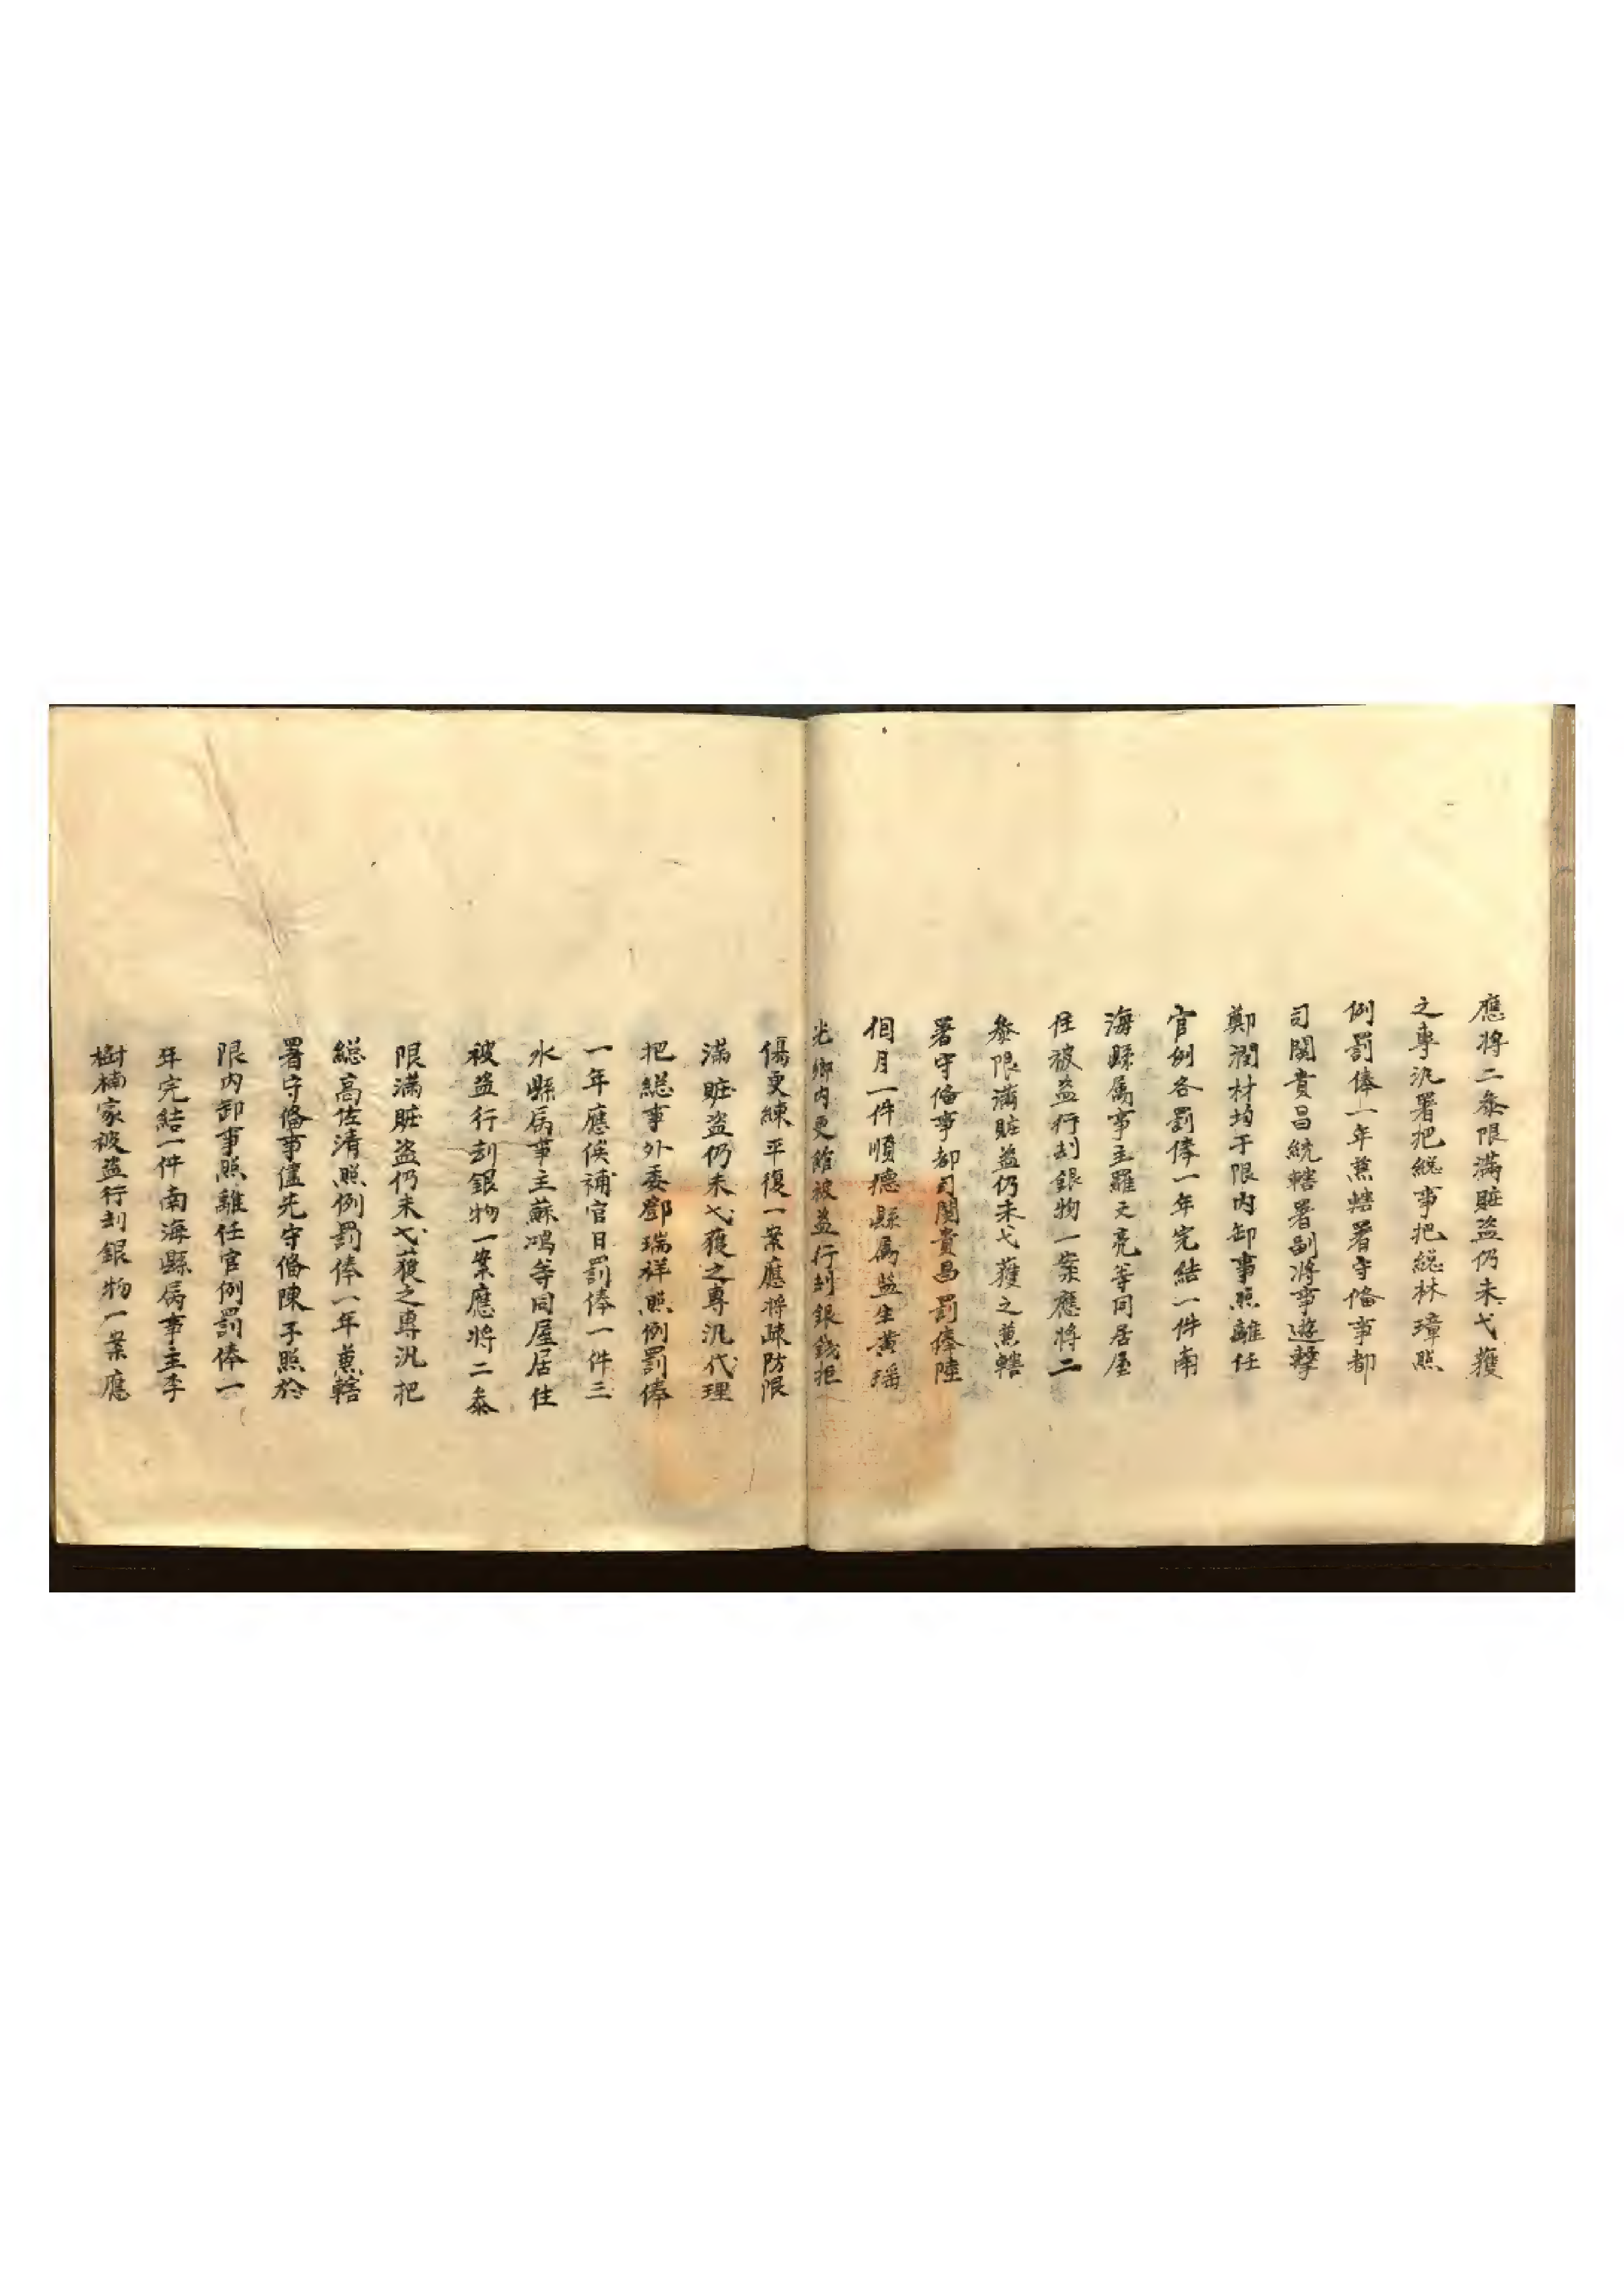 應將二叅限滿賍盗仍未弋獲
之專汛署把総事把総林璋照
例罰俸一年兼轄署守俻事都
司閔貴昌統轄署副將事遊擊
鄭潤材均于限内卸事照離任
官例各罰俸一年完結一件南
海縣属事主羅天亮等同居屋
住被盗行刦銀物一案應將二
叅限滿賍盗仍未弋獲之兼轄
署守俻事都司閔貴昌罰俸陸
個月一件順德縣属监生黄瑶
光鄉内更館被盗行刦銀錢拒
傷更練平復一案應将疎防限
滿賍盗仍未弋獲之專汛代理
把総事外委鄧瑞祥照例罰俸
一年應俟補官日罰俸一件三
水縣属事主蘇鴻等同屋居住
被盗行刦銀物一案應將二叅
限滿賍盗仍未弋獲之專汛把
総高佐清照例罰俸一年兼轄
署守俻事儘先守俻陳子照於
限内卸事照離任官例罰俸一
年完結一件南海縣属事主李
樹楠家被盗行刦銀物一案應